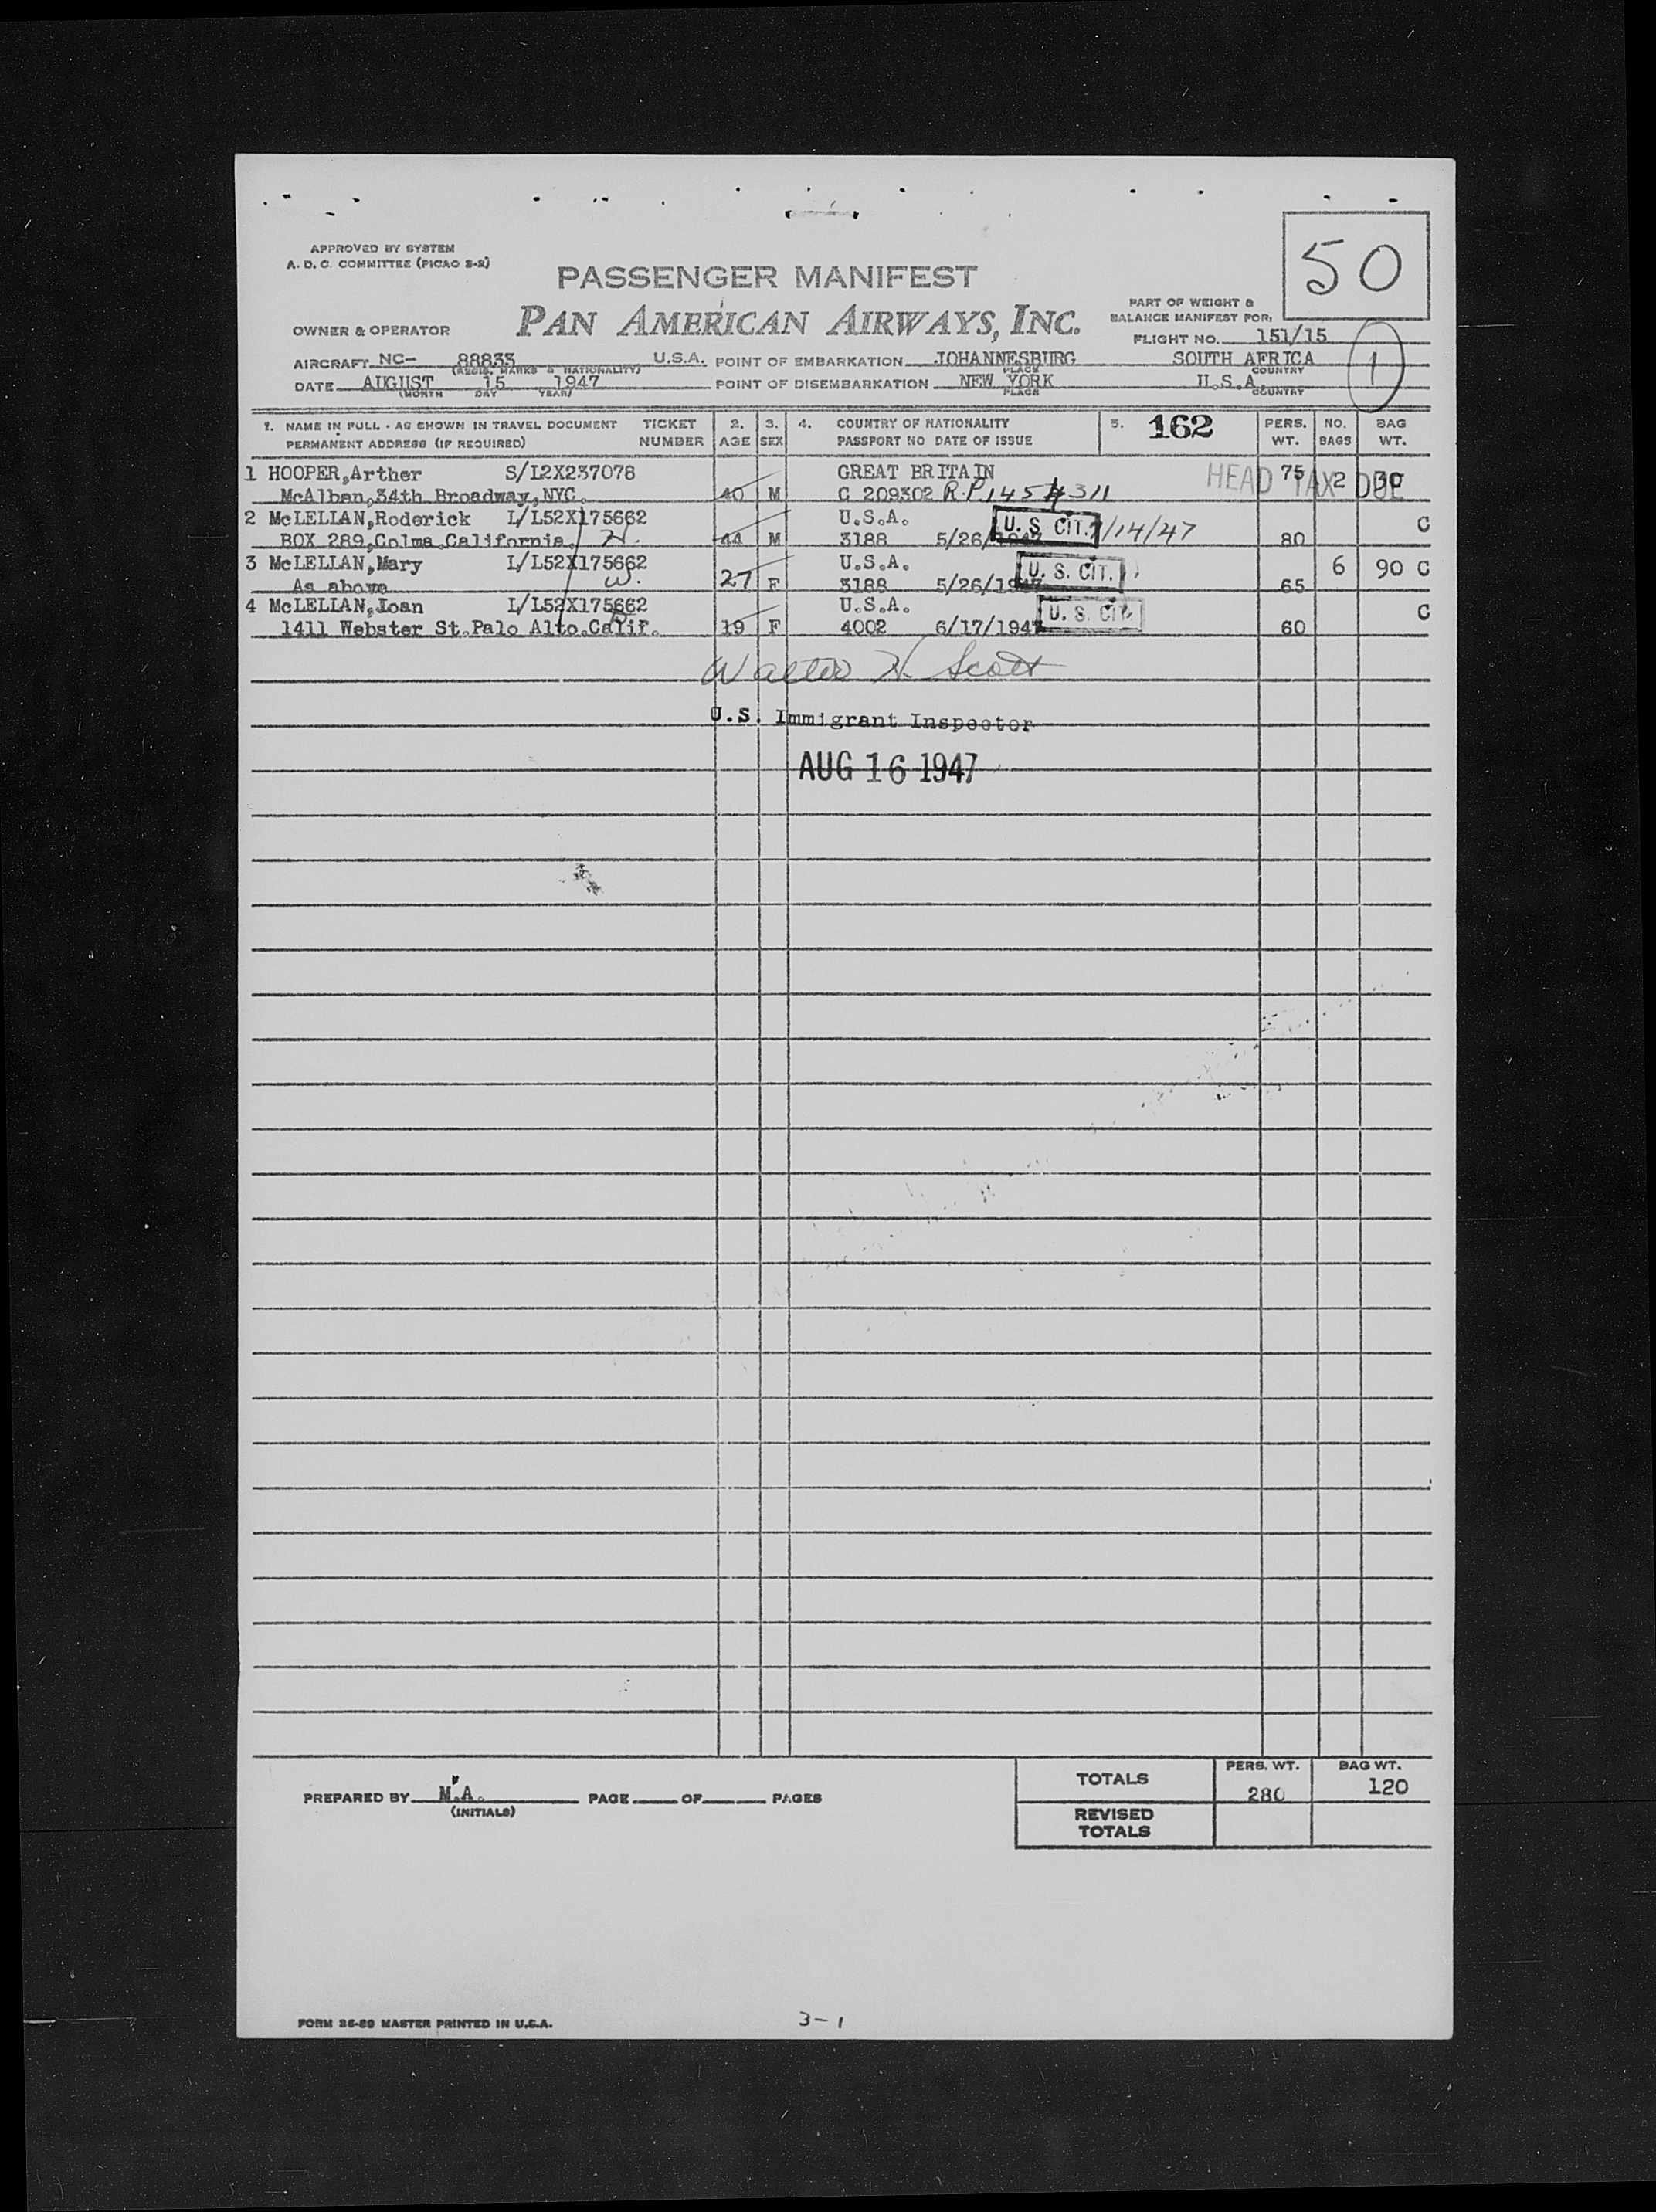 APPROVED BY SYSTEM
A. D. C. COMMITTEE (PICAO 3-2)
50
PASSENGER MANIFEST
PAN AMERICAN AIRWAYS, INC.
PART OF WEIGHT &
BALANCE MANIFEST FOR:
OWNER & OPERATOR
FLIGHT NO. 151/15
AIRCRAFT NC- 88833 U.S.A. POINT OF EMBARKATION JOHANNESBURG SOUTH AFRICA
(REGIS. MARKS & NATIONALITY) PLACE COUNTRY
1
DATE AUGUST 15 1947 POINT OF DISEMBARKATION NEW YORK U.S.A.
(MONTH DAY YEAR) PLACE COUNTRY
1. NAME IN FULL - AS SHOWN IN TRAVEL DOCUMENT TICKET 2. 3. 4. COUNTRY OF NATIONALITY 5. 162 PERS. NO. BAG
PERMANENT ADDRESS (IF REQUIRED) NUMBER AGE SEX PASSPORT NO DATE OF ISSUE WT. BAGS WT.
1 HOOPER,Arther S/L2X237078 GREAT BRITAIN HEAD TAX DUE 75 2 30
McAlben,34th Broadway,NYC. 40 M C 209302 R.P. 145
2 McLELLAN,Roderick L/L52X175662 U.S.A. U. S. CIT. /14/47 C
BOX 289,Colma.California. H. 44 M 3188 5/26/1947 80
3 McLELLAN,Mary L/L52X175662 U.S.A. U. S. CIT. 6 90 C
As above W. 27 F 3188 5/26/1947 65
4 McLELLAN,Ioan L/L52X175662 U.S.A. U. S. CIT. C
1411 Webster St.Palo Alto.Calif. 19 F 4002 6/17/1947 60
Walter H. Scott
U.S. Immigrant Inspector
AUG 16 1947
TOTALS PERS. WT. BAG WT.
280 120
PREPARED BY M.A. PAGE OF PAGES
(INITIALS)
REVISED
TOTALS
FORM 26-89 MASTER PRINTED IN U.S.A.
3-1